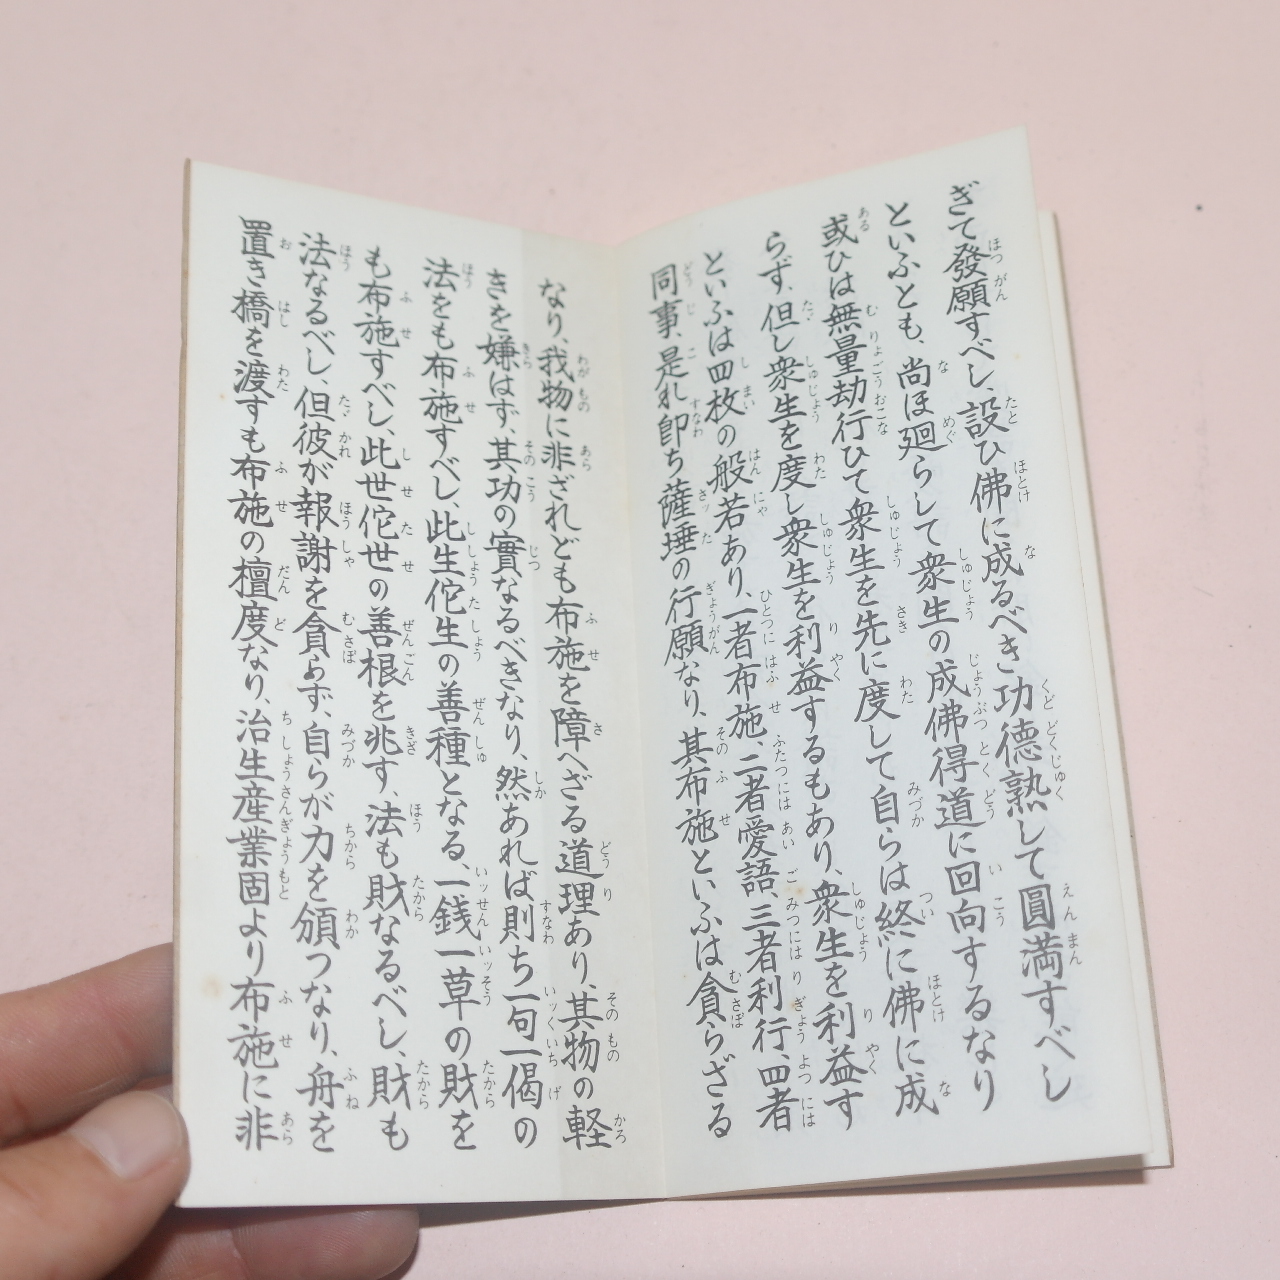 ぎて發願すべし、設ひ佛に成るべき功德熟して圓満すべし
といふとも、尚ほ廻らして衆生の成佛得道に回向するなり
或ひは無量劫行ひて衆生を先に度して自らは終に佛に成
らず、但し衆生を度し衆生を利益するもあり、衆生を利益す
といふは四枚の般若あり、一者布施、二者愛語、三者利行、四者
同事、是れ卽ち薩埵の行願なり、其布施といふは貪らざる
なり、我物に非ざれども布施を障へざる道理あり、其物の軽
きを嫌はず、其功の實なるべきなり、然あれば則ち一句一偈の
法をも布施すべし、此生佗生の善種となる、一銭一草の財を
も布施すべし、此世佗世の善根を兆す、法も財なるべし、財も
法なるべし、但彼が報謝を貪らず、自らが力を頒つなり、舟を
置き橋を渡すも布施の檀度なり、治生産業固より布施に非